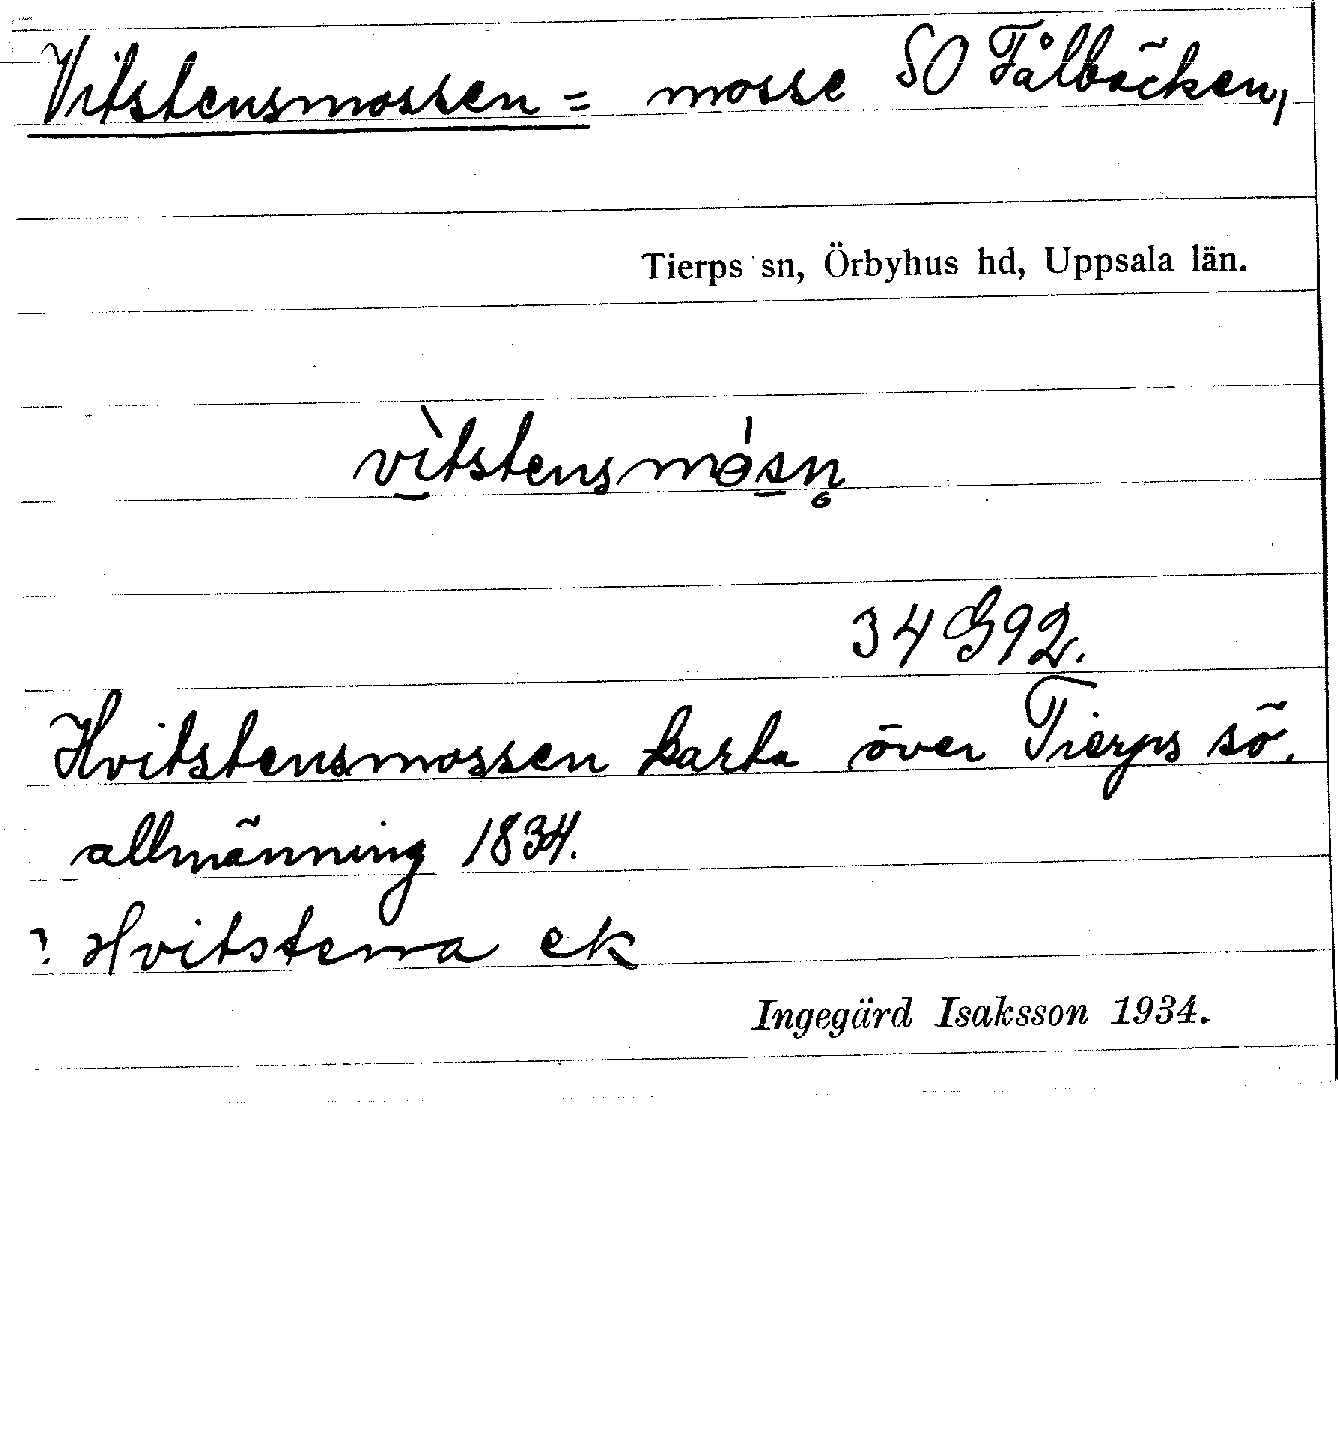 Vitstensmossen = mosse SO Fålbäcken,
Tierps sn, Örbyhus hd, Uppsala län.
vìtstensmósn̥
34 G 92.
Hvitstensmossen karta över Tierps sö.
allmänning 1834.
? Hvitsterra ek
Ingegärd Isaksson 1934.